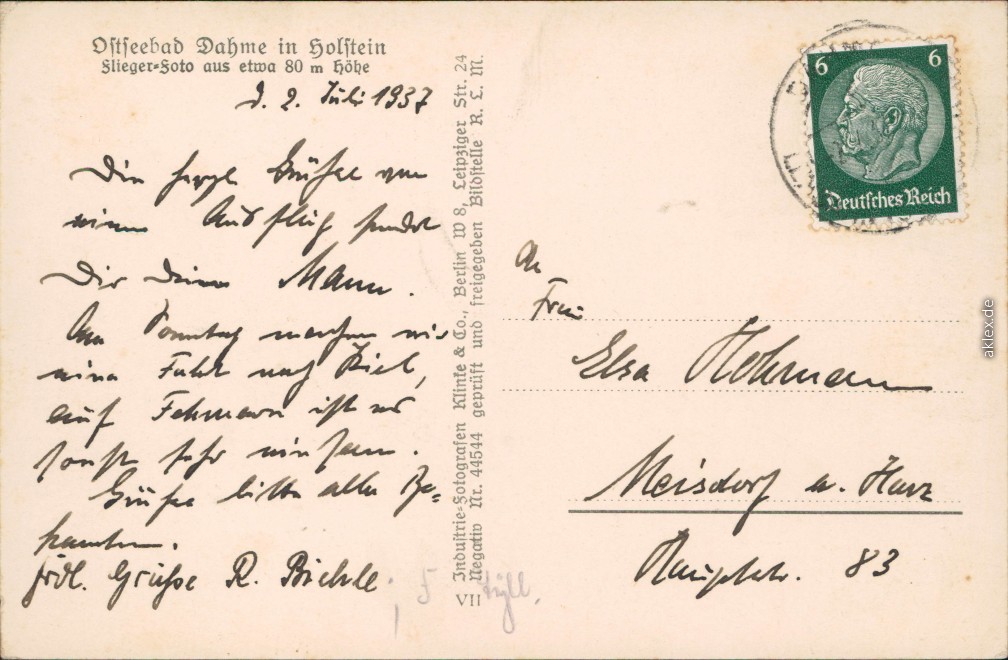 Ostseebad Dahme in Holstein
Flieger-Foto aus etwa 80 m Höhe
d. 2. Juli 1937
Die herzl Grüße von
einem Ausflug sendet
Dir Dein Mann.
Am Sonntag machen wir
eine Fahrt nach Kiel,
auf Fehmarn ist es
sonst sehr einsam.
Grüße bitte alle Be=
kannten.
frdl. Grüße R.
Industrie-Fotografen Klinke & Co., Berlin W 8, Leipziger Str. 24
Negativ Nr. 44544 geprüft und freigegeben Bildstelle R. L. M.
VII
6 6
Deutsches Reich
An
Frau
Elsa Hohmann
Meisdorf a. Harz
Hauptstr. 83
aklex.de